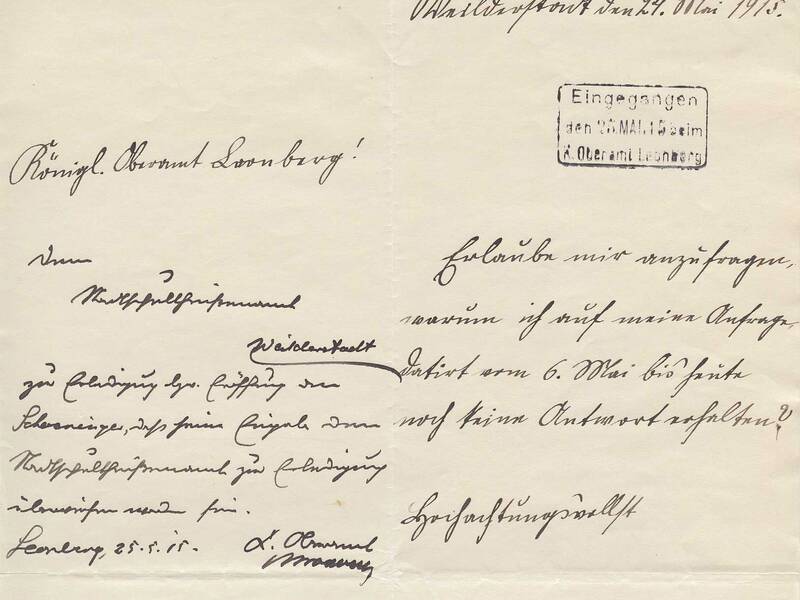 Weilderstadt den 24. Mai 1915.
Eingegangen
den 25.MAI.15 beim
K. Oberamt Leonberg
Königl. Oberamt Leonberg!
Erlaube mir anzufragen,
warum ich auf meine Anfrage,
datirt vom 6. Mai bis heute
noch keine Antwort erhalten?
Hochachtungsvollst
Dem
Stadtschultheißenamt
Weilderstadt
zur Erledigung bzw. Eröffnung an
Schoeninger, daß seine Eingabe dem
Stadtschultheißenamt zur Erledigung
überwiesen worden sei.
Leonberg, 25.5.15. K. Oberamt